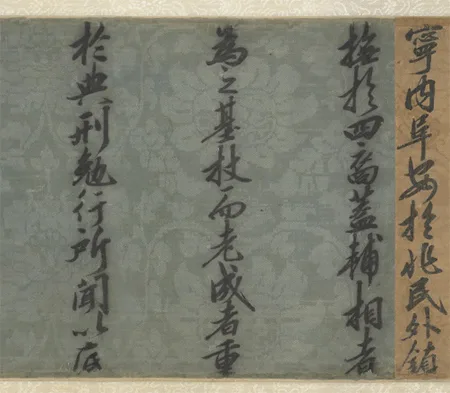 寧内阜安於兆民外鎮
撫於四裔蓋輔相者
為之基杖而老成者重
於典刑勉行所聞以底